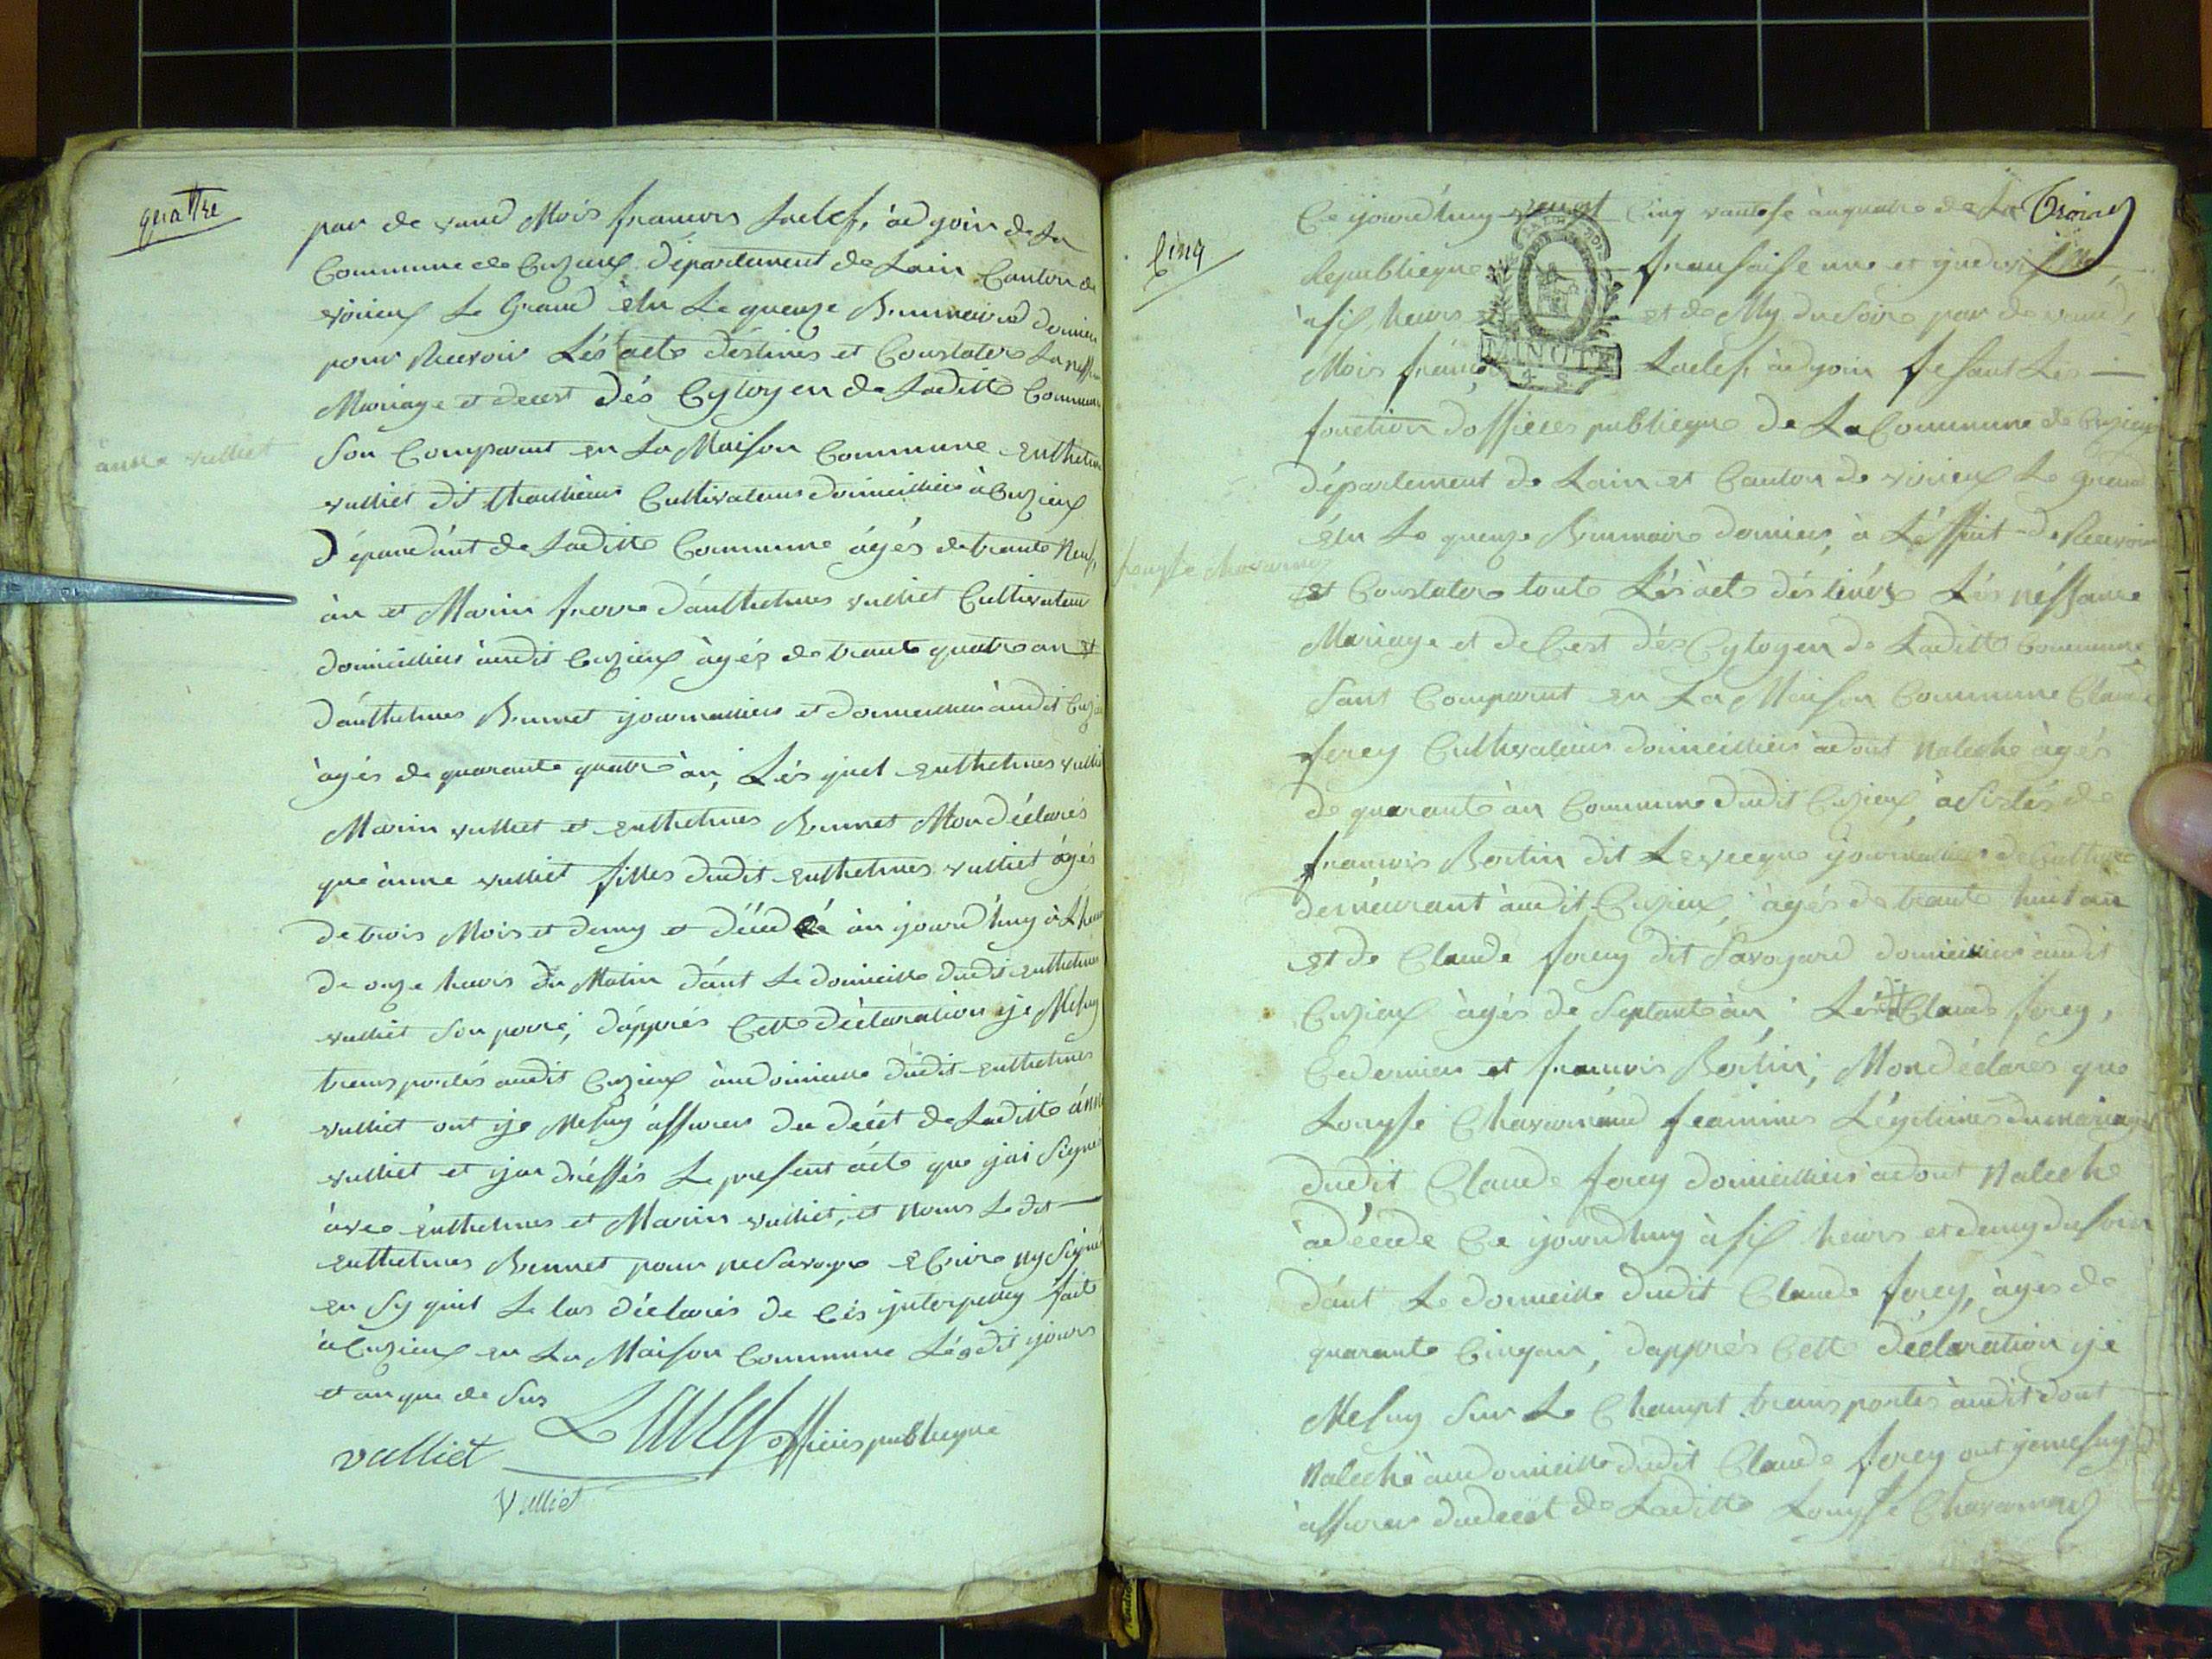 quattre
par de vand Mois francois Laclef, àdjoin de La
Commune de Cuzieux département de Lain Canton de
virieux Le Grand élu Le quenze Brumaire dernier
pour Recevoir Lés acte déstines et Constater La
Mariage et decest dés Cytoyen de Laditte Commune
Son Comparut en La Maison Commune enthelme
anne vulliet
vulliet dit Cultivateur domicillier à Cuzieux
dépandant de Laditte Commune agés de trante Neuf,
àn et Marin frerre danthelmes vulliet Cultivateur
domicilliers àudit Cuzieux àgés de trante quatre an et
danthelmes Brunet ijournallier et domicillier àudit
àgés de quarante quatre àn, Lés quel enthelmes vulliet
Marin vulliet et enthelmes Brunet Mon déclarés
que ànne vulliet filles dudit enthelmes vulliet àgés
de trois Mois et demy et décédé àu ijourd'huy à Lheure
de onze heures du Matin dánt Le domicille dudit enthelme
vulliet Son perre, dapprés Cette déclaration ije Mesuy
transportés audit Cuzieux àu domicille dudit enthelmes
vulliet ont ije Mesuy àssurer du décét de Laditte ànne
vulliet et ijan dréssés Le present acte que ijai Signé
àvec enthelmes et Marin vulliet, et Nonns Le dit
enthelmes Brunet pour ne Savoyre ecrire ny Signé
en Sy quil Le las déclarés de Cés ynterpelley fait
à Cuzieux en La Maison Commune Lésdit ijours
et an que de Sus
Laclef officier publicque
vulliet
Vulliet
Troine
Cinq
Ce ijourd'huy vengt Cinq vantose àn quatre de La
Republicque fransaise une et yndivisible
à six heures et de My du Soire par de vand,
Mois françois Laclef, àdjoin fesant Les
fonction dofficer publicque de La Commune de Cuzieux
département de Lain et Canton de virieux Le grand
élu Le quenze Brumaire dernier, à Léffait de Recevoir
Louysse Chavannes
et Constater toute Lés àcte déstinés Lés néssance
Mariage et deCest dés Cytoyen de Laditte Commune
Sont Comparut en La Maison Commune Claude
ferey Cultivateur domicillier àdont Naleche àgés
de quarante àn Commune dudit Cuzieux, àsistés de
francois Bertin dit Levecque ijournallier
deméurant àudit Cuzieux, àgés de trante huit àn
et de Claude ferey dit Savoyard domicillier àudit
Cuzieux àgés de Septante àn, Lés Claude ferey,
Cedernier et francois Bertin, Mon déclarés que
Louysse Chavannand feammes Légitimes du mariage
dudit Claude ferey domicilliers àdont Naleche
à décédé Ce ijourd'huy à six heures et demy du soir
dánt Le domicille dudit Claude ferey, àgés de
quarante Cinq an, dapprés Cette déclaration ije
Mesuy Sur Le Champt transportés àudit dont
Naleche àu domicille dudit Claude ferey ont ije mesuy
àssurer du decét de Laditte Louysse Chavannand